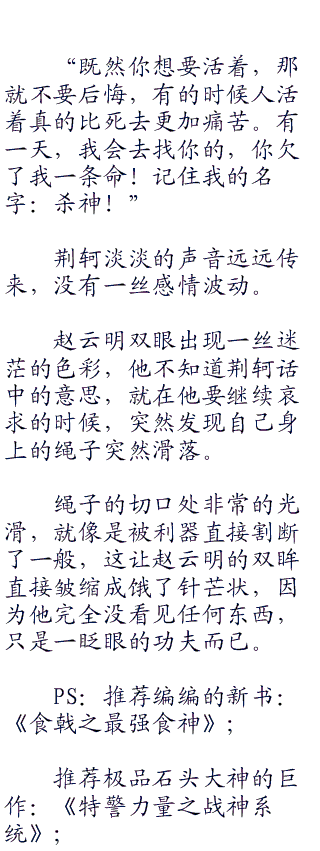 “既然你想要活着，那
就不要后悔，有的时候人活
着真的比死去更加痛苦。有
一天，我会去找你的，你欠
了我一条命！记住我的名
字：杀神！”
荆轲淡淡的声音远远传
来，没有一丝感情波动。
赵云明双眼出现一丝迷
茫的色彩，他不知道荆轲话
中的意思，就在他要继续哀
求的时候，突然发现自己身
上的绳子突然滑落。
绳子的切口处非常的光
滑，就像是被利器直接割断
了一般，这让赵云明的双眸
直接皱缩成饿了针芒状，因
为他完全没看见任何东西，
只是一眨眼的功夫而已。
PS：推荐编编的新书：
《食戟之最强食神》；
推荐极品石头大神的巨
作：《特警力量之战神系
统》；